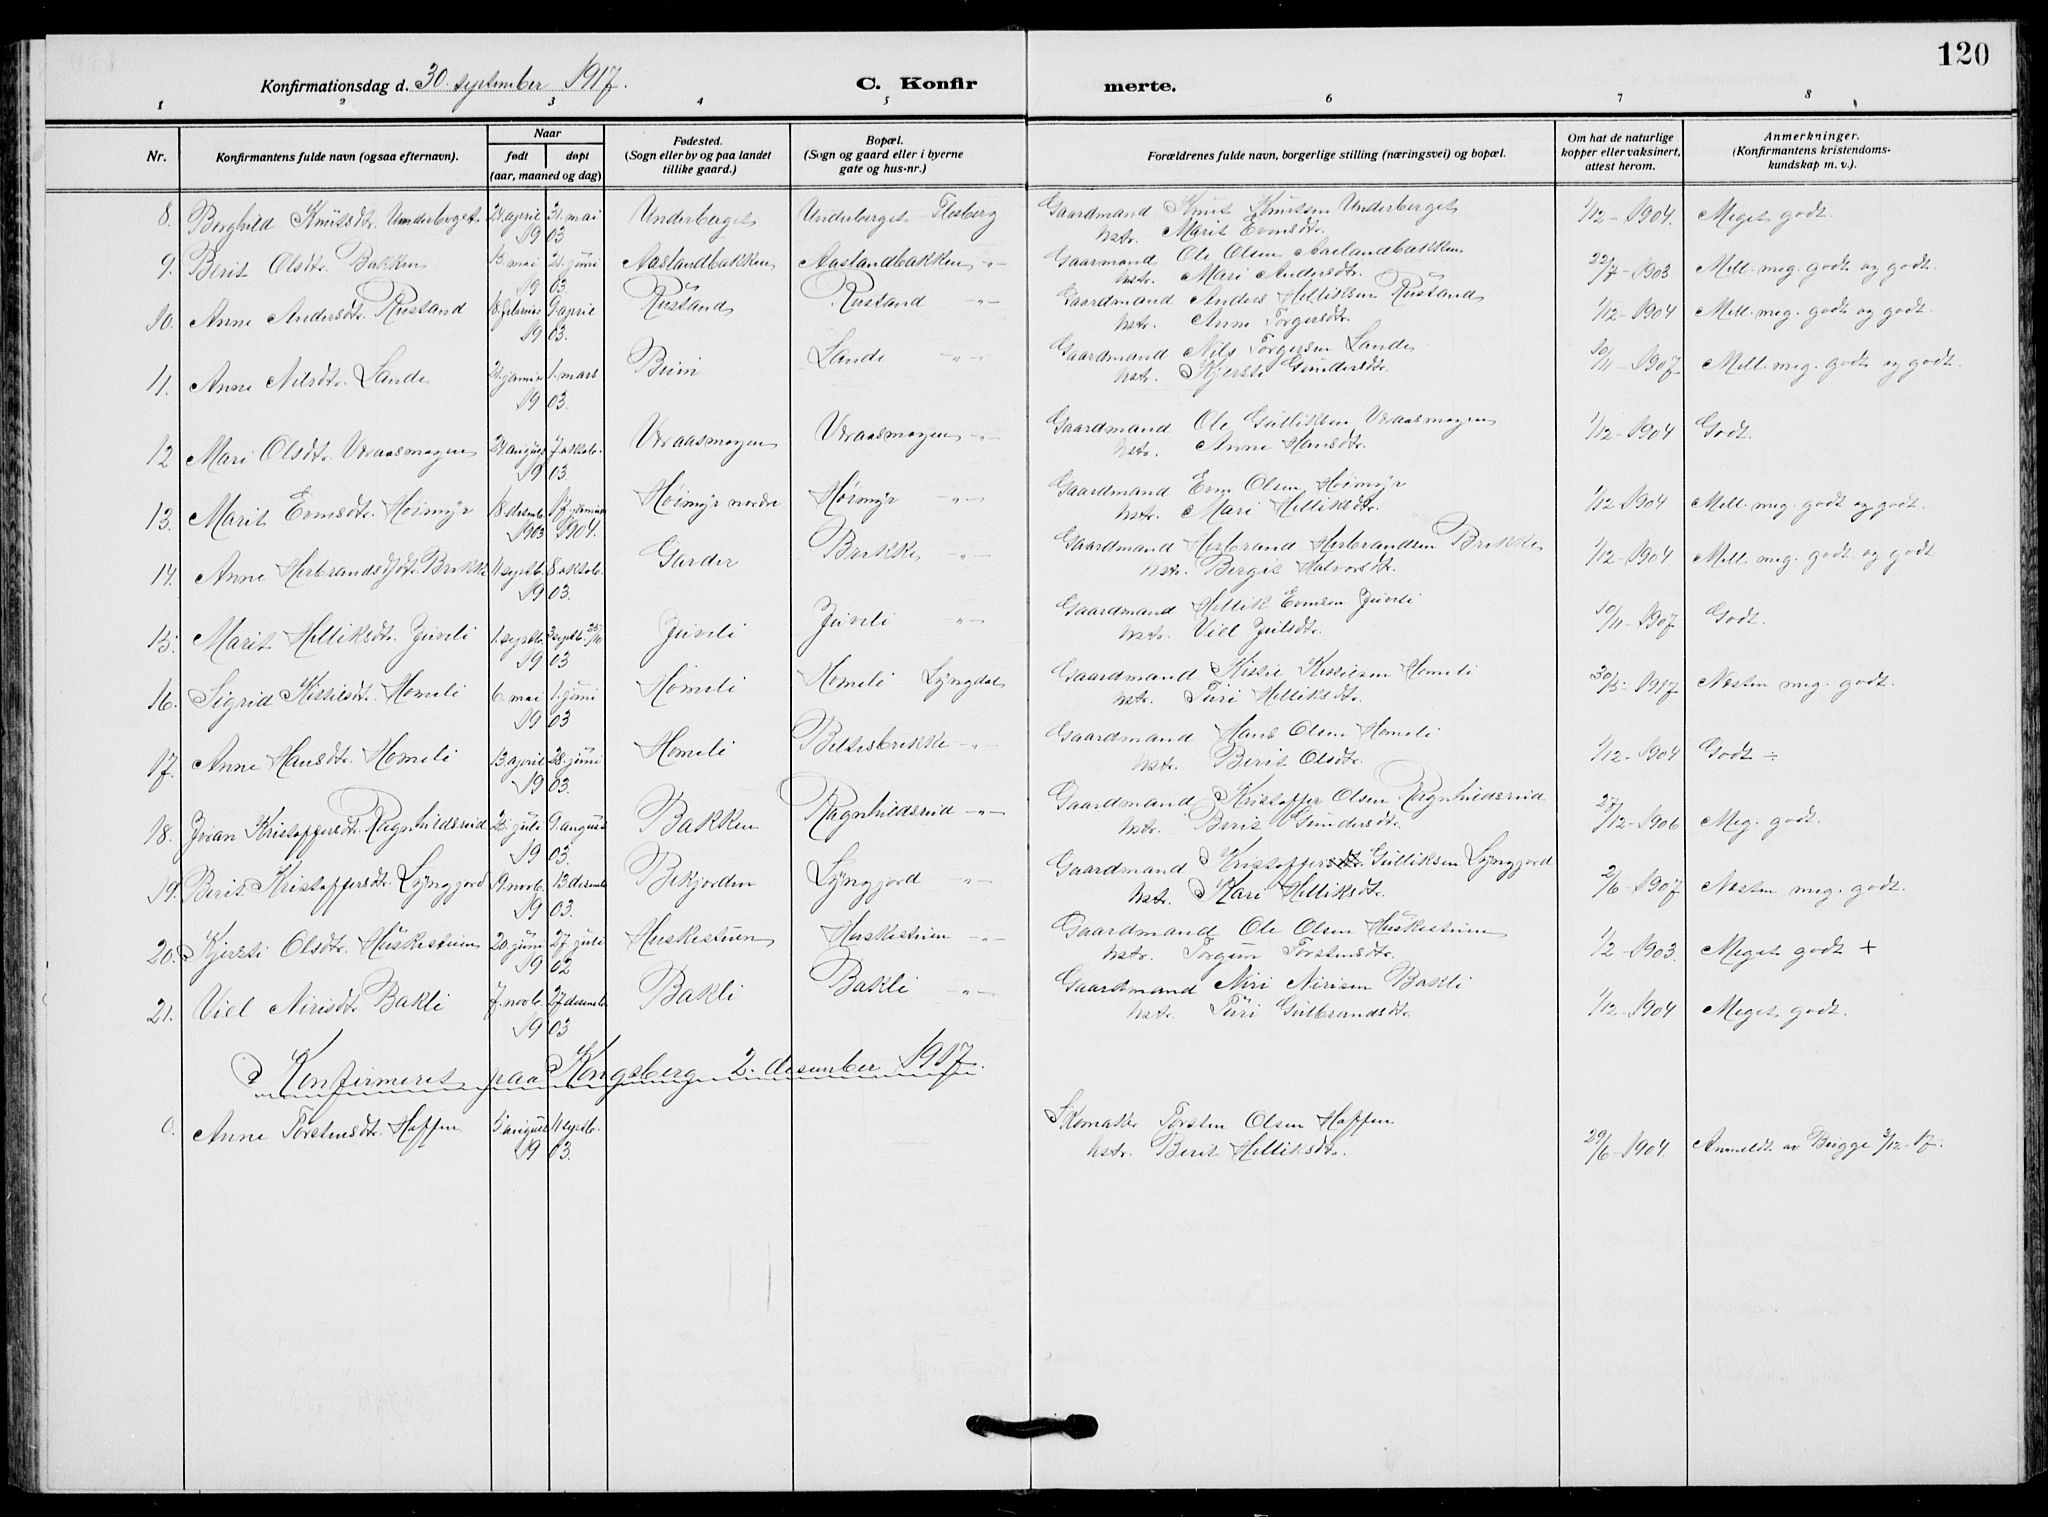 120
Konfirmationsdag d. 30. september 1917. C. Konfir merte.
1 2 3 4 5 6 7 8
Nr. Konfirmantens fulde navn (ogsaa efternavn). Naar født døpt (aar, maaned og dag) Fødested. (Sogn eller by og paa landet tillike gaard.) Bopæl. (Sogn og gaard eller i byerne gate og hus-nr.) Forældrenes fulde navn, borgerlige stilling (næringsvei) og bopæl. Om hat de naturlige kopper eller vaksinert, attest herom. Anmerkninger. (Konfirmantens kristendoms-kundskap m. v.).
8. Borghild Knutsdtr. Underberget 31. mai Underberget Underberget Flesberg Gaardmand Knut Knutsen Underberget 1/12-1904. Meget godt.
1903 hstr. Marit Evensdtr.
9. Berit Olsdtr. Bakken 13. mai 21. juni Aaslandbakken Aaslandbakken -"- Gaarmand Ole Olsen Aaslandbakken 22/7-1903 Mell. meg. godt og godt.
1903. hstr. Mari Andersdtr.
10. Anne Andersdtr. Rustand 18. februar 9. april Rustand Rustand -"- Gaardmand Anders Helliksen Rustand 1/12-1904 Mell. meg. godt og godt.
1903. hstr. Anne Torgersdtr.
11. Anne Nilsdtr. Lande 1. mars Lande -"- Gaardmand Nils Torgersen Lande 10/11-1907. Mell. meg. godt og godt.
1903. hstr. Kjersti Gundersdtr.
12 Mari Olsdtr. Vraasmogen 24. august 7. oktob. Vraasmogen Vraasmogen -"- Gaardmand Ole Gulliksen Vraasmogen 1/12-1904 Godt.
1903 hstr. Anne Hansdtr.
13. Marit Evensdtr. Høimyr 18. desemb. 17. januar Høimyr nordre Høimyr -"- Gaardmand Even Olsen Høimyr 1/12-1904 Mell. meg. godt og godt.
1903 1904. hstr. Mari Helliksdtr.
14. Anne Herbrandsdtr. Brekke 11. septb. 8. oktob. Garder Brekke -"- Gaardmand Herbrand Herbrandsen Brekke 1/12-1904 Mell. meg. godt og godt
1903. hstr. Bergit Halvorsdtr.
15. Marit Helliksdtr. Juveli 1. septb. Juveli Juveli -"- Gaardmand Hellik Evensen Juveli 10/11-1907 Godt.
1903 hstr. Viel Julsdtr.
16. Sigrid Kittilsdtr. Homeli 6. mai 1. juni Homeli Homeli Lyngdal Gaardmand Kittil Kittilsen Homeli 30/3-1917 Næsten meg. godt.
1903 hstr. Turi Helliksdtr.
17. Anne Hansdtr. Homeli 13. april 28. juni Homeli Beltesbrekke -"- Gaardmand Hans Olsen Homeli 1/12-1904 Godt ÷
1903. hstr. Berit Olsdtr.
18. Joran Kristoffersdtr. Ragnhildsrud juli 9. august Bakken Ragnhildsrud -"- Gaardmand Kristoffer Olsen Ragnhildsrud 27/12-1906 Meg. godt.
1903. hstr. Berit Gundersdtr.
19. Berit Kristoffersdtr. Lyngjord 19. novb. 13. desemb. Bekjorden Lyngjord -"- Gaardmand Kristoffer Gulliksen Lyngjord 2/6-1907 Næsten meg. godt.
1903. hstr. Kari Helliksdtr.
20. Kjersti Olsdtr. Huskestuen 20. juni 27 juli Huskestuen Huskestuen -"- Gaardmand Ole Olsen Huskestuen 1/2-1903. Meget godt +
1902 hstr. Torgun Torstensdtr.
21. Viel Nirisdtr. Bakli 7. novb. 27 desemb. Bakli Bakli -"- Gaardmand Niri Nirisen Bakli 1/12-1904 Meget godt.
1903 hstr. Turi Gulbrandsdtr.
Konfirmeret paa Kongsberg 2. desember 1917.
0. Anne Torstensdtr. Hoffen 5. august 11 septb. Skomaker Torsten Olsen Hoffen
1903. hstr. Berit Helliksdtr. 29/6-1904. Anmeldt av Bugge 3/12-17.